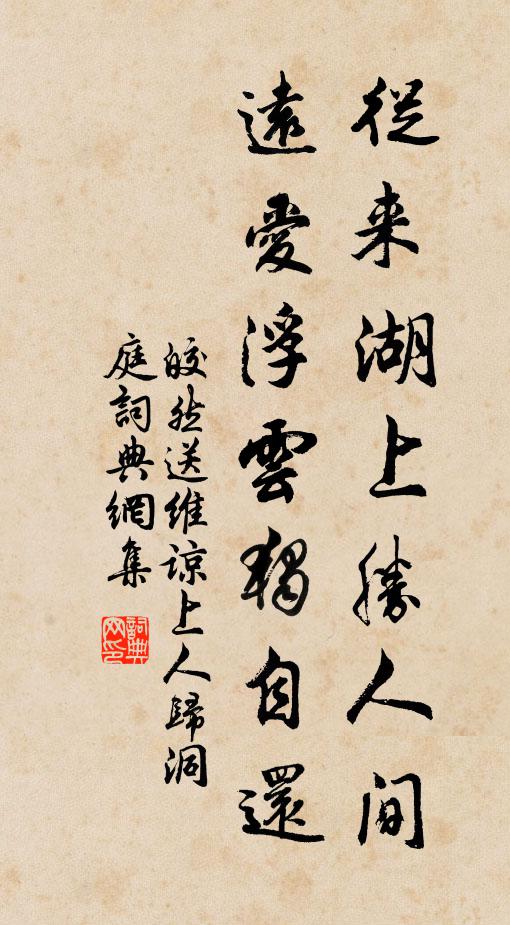 從来湖上勝人間
遠愛浮雲獨自還
皎然送維諒上人歸洞
庭詞典網集
詞典网印